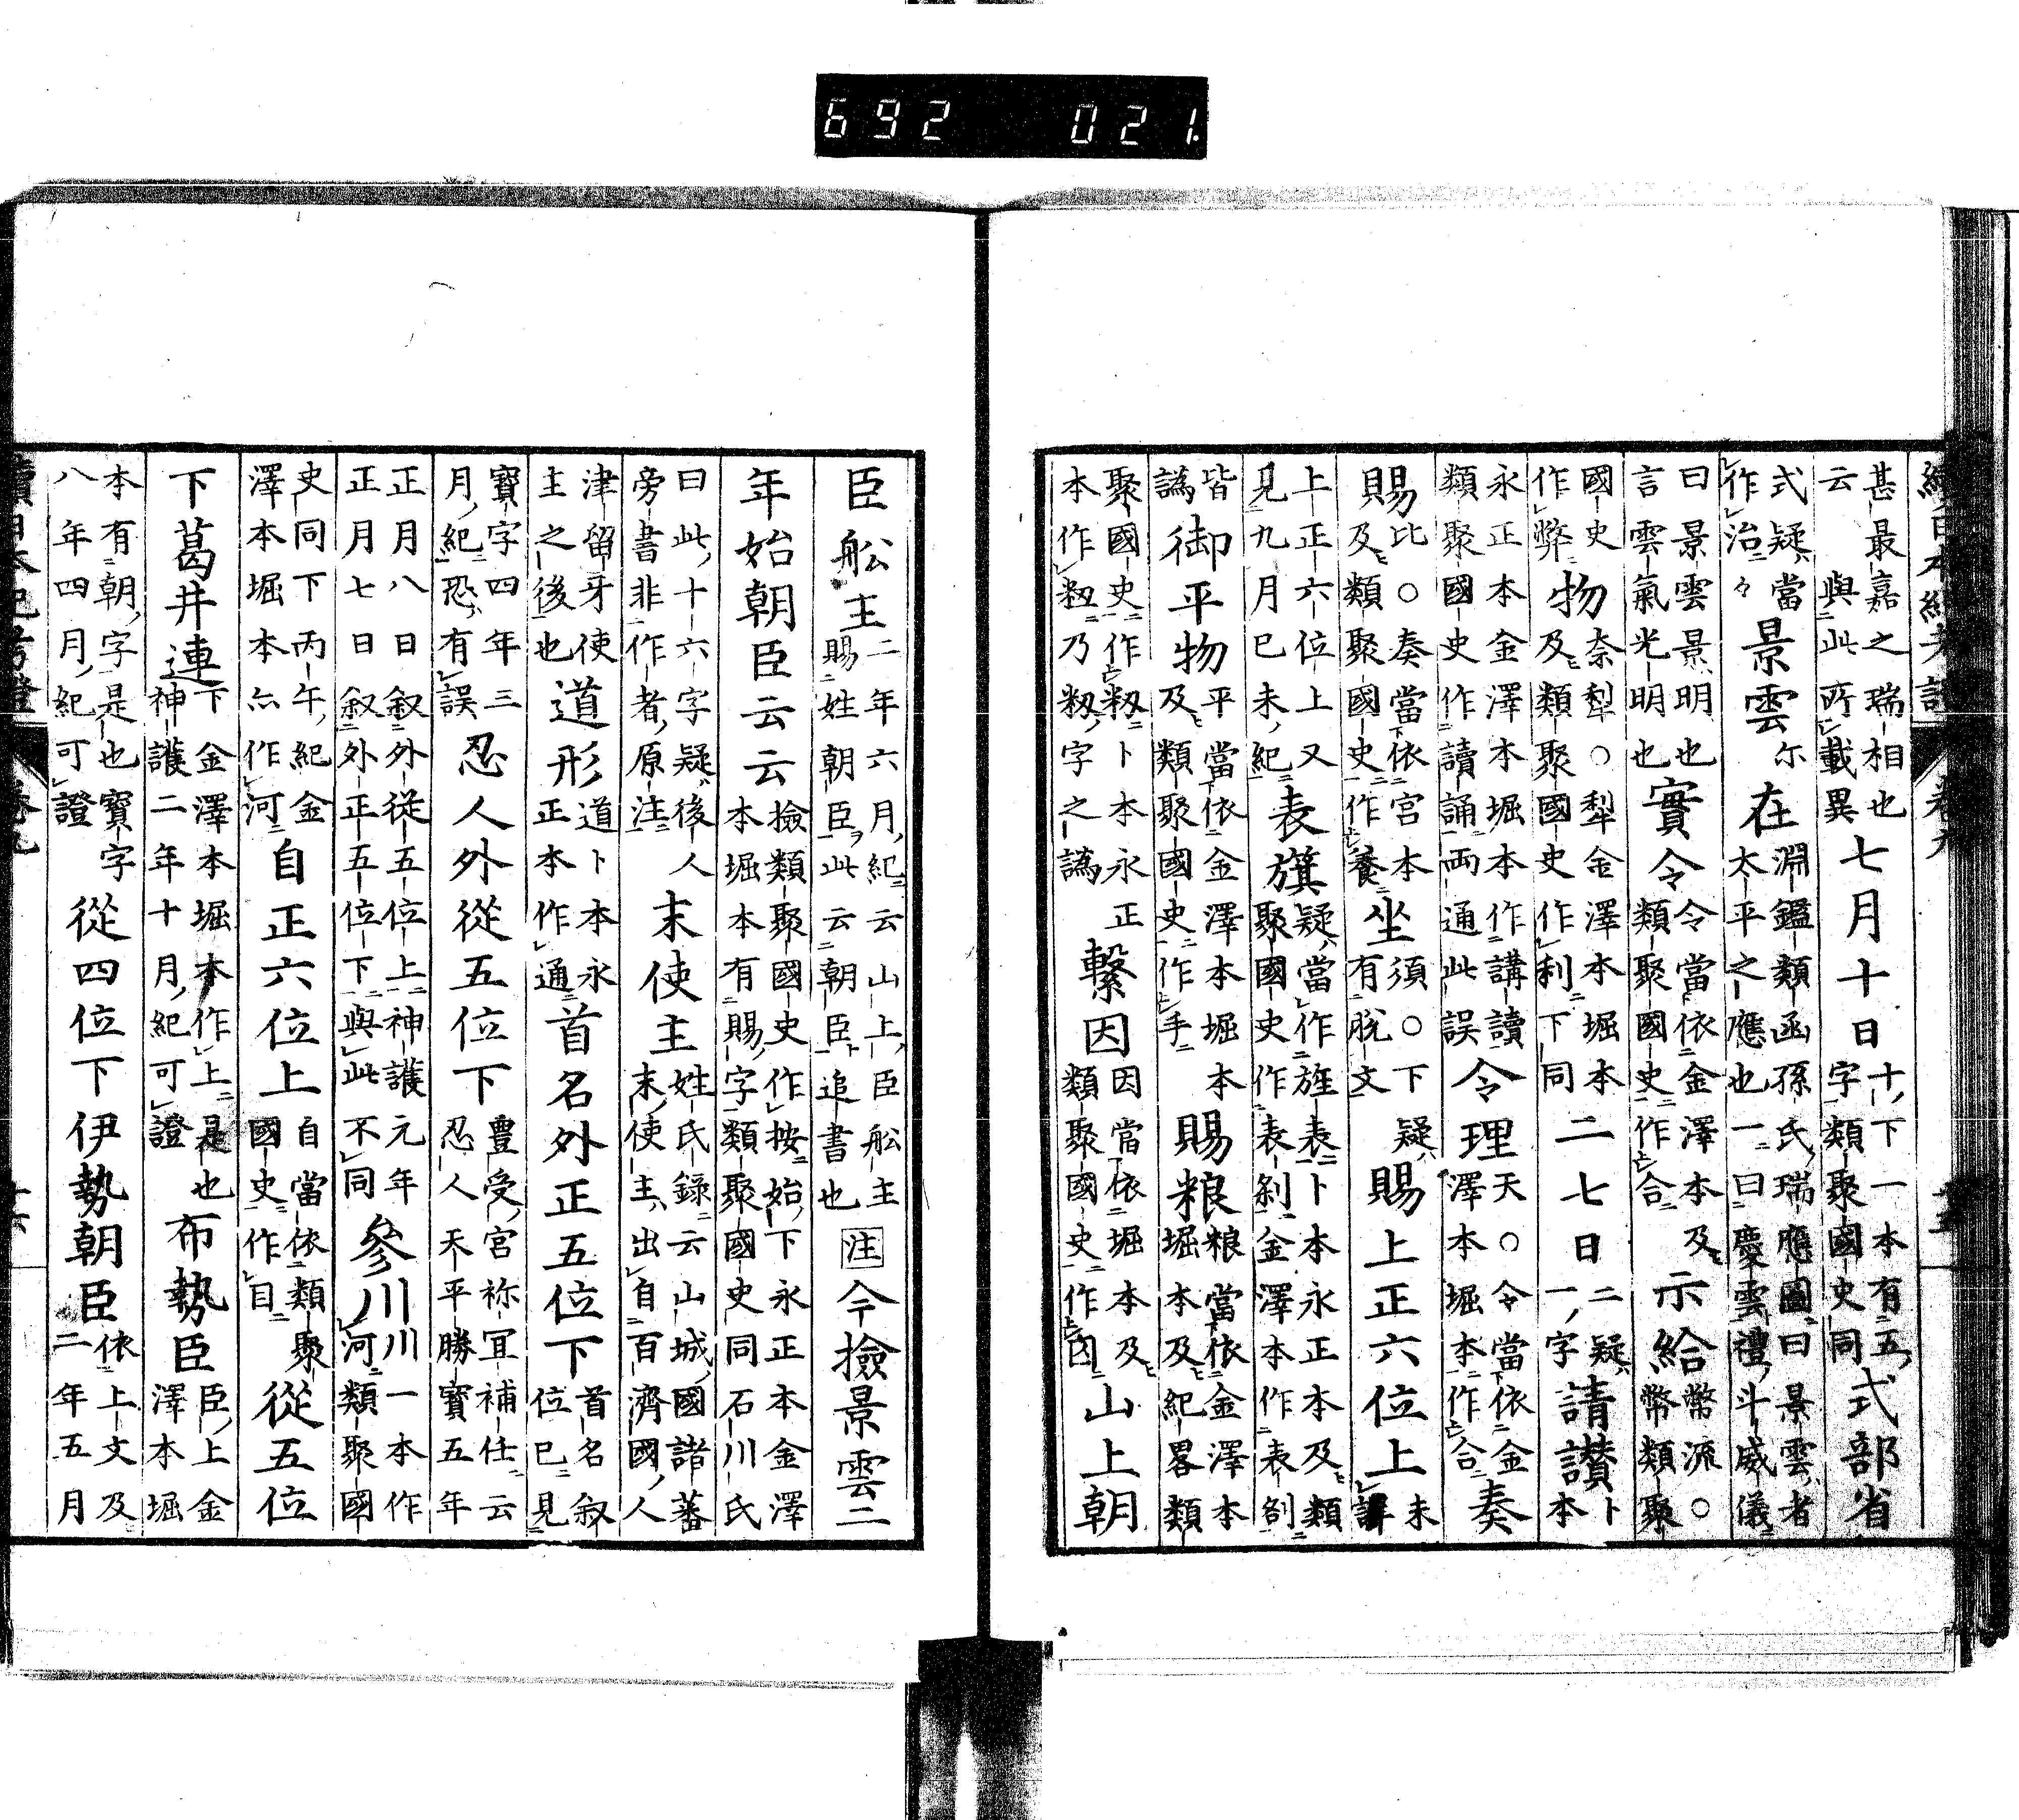 692 021
甚最嘉之瑞相也
云與此所載異
七月十日
十下一本有五
字類聚國史同
式部省
式疑當
作治々
景雲
尓
在
淵鑑類函孫氏瑞應圖曰景雲者
太平之應也一曰慶雲禮斗威儀
曰景雲景明也
言雲氣光明也
實令
令當依金澤本及
類聚國史作合
示給
幣流〇
幣類聚
國史
作弊
物
奈犁〇犁金澤本堀本
及類聚國史作利下同
二七日
二疑
一字
請讃
卜
本
永正本金澤本堀本作講讀
類聚國史作讀誦両通此誤
令理
天〇令當依金
澤本堀本作合
奏
賜
比〇奏當依宮本
及類聚國史作養
坐
須〇下疑
有脱文
賜上正六位上
未
詳
上正六位上又
見九月巳未紀
表旗
疑當作旌表卜本永正本及類
聚國史作表剝金澤本作表刳
皆
譌
御平物
平當依金澤本堀本
及類聚國史作手
賜粮
粮當依金澤本
堀本及紀畧類
聚國史作籾卜本永正
本作籾乃籾字之譌
繋因
因當依堀本及
類聚國史作囚
山上朝
臣舩主
二年六月紀云山上臣舩主
賜姓朝臣此云朝臣追書也
注
今撿景雲二
年始朝臣云云
撿類聚國史作按始下永正本金澤
本堀本有賜字類聚國史同石川氏
曰此十六字疑後人
旁書非作者原注
末使主
姓氏録云山城國諸蕃
末使主出自百濟國人
津留牙使
主之後也
道形
道卜本永
正本作通
首名外正五位下
首名叙
位已見
寶字四年三
月紀恐有誤
忍人外從五位下
豊受宮祢冝補任云
忍人天平勝寶五年
正月八日叙外從五位上神護元年
正月七日叙外正五位下與此不同
參川
川一本作
河類聚國
史同下丙午紀金
澤本堀本亦作河
自正六位上
自當依類聚
國史作目
從五位
下葛井連
下金澤本堀本作上是也
神護二年十月紀可證
布勢臣
臣上金
澤本堀
本有朝字是也寶字
八年四月紀可證
從四位下伊勢朝臣
依上文及
二年五月